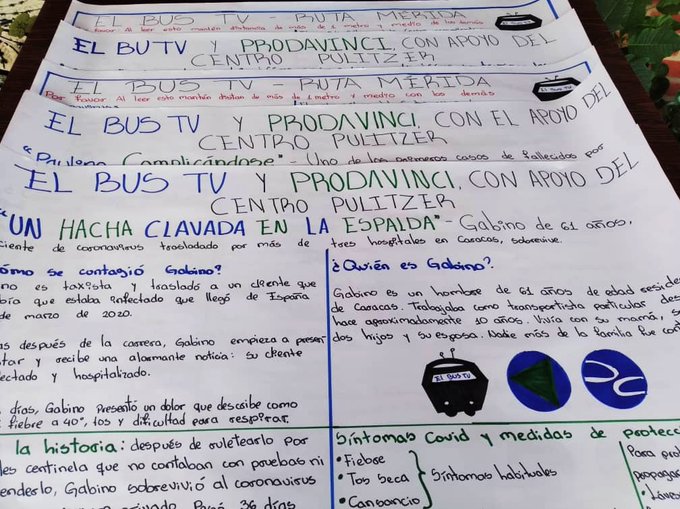 EL BUS TV - RUTA MÉRIDA
favor Al leer esto mantén distancia de más de 1 metro y medio de los demás
EL BU TV Y PRODAVINCI, CON APOYO DEL
CENTRO PULITZER
EL BUS TV - RUTA MÉRIDA
Por favor Al leer esto mantén distan de más de 1 metro y medio con los demás
EL BUS TV Y PRODAVINCI, CON EL APOYO DEL
CENTRO PULITZER
Complicándose" - Uno de los primeros casos de fallecidos por
EL BUS TV Y PRODAVINCI, CON APOYO DEL
CENTRO PULITZER
"UN HACHA CLAVADA EN LA ESPALDA" - Gabino de 61 años,
ciente de coronavirus trasladado por más de tres hospitales en Caracas, sobrevive.
ómo se contagió Gabino?
no es taxista y trasladó a un cliente que
bía que estaba infectado que llegó de España
de marzo de 2020.
as después de la carrera, Gabino empieza a preser
tar y recibe una alarmante noticia: su cliente
ectado y hospitalizado.
días, Gabino presentó un dolor que describe como
fiebre a 40°, tos y dificultad para respirar.
¿Quién es Gabino?
Gabino es un hombre de 61 años de edad reside
de Caracas. Trabajaba como transportista particular des
hace aproximadamente 10 años. Vivía con su mamá, s
dos hijos y su esposa. Nadie más de la familia fue con
EL BUS TV
la historia: después de ruletearlo por
les centinela que no contaban con pruebas ni
enderlo, Gabino sobrevivió al coronavirus
36 días
Síntomas Covid y medidas de protecc
• Fiebre
• Tos Seca
• Cansancio
Síntomas habituales
Para pro
propaga